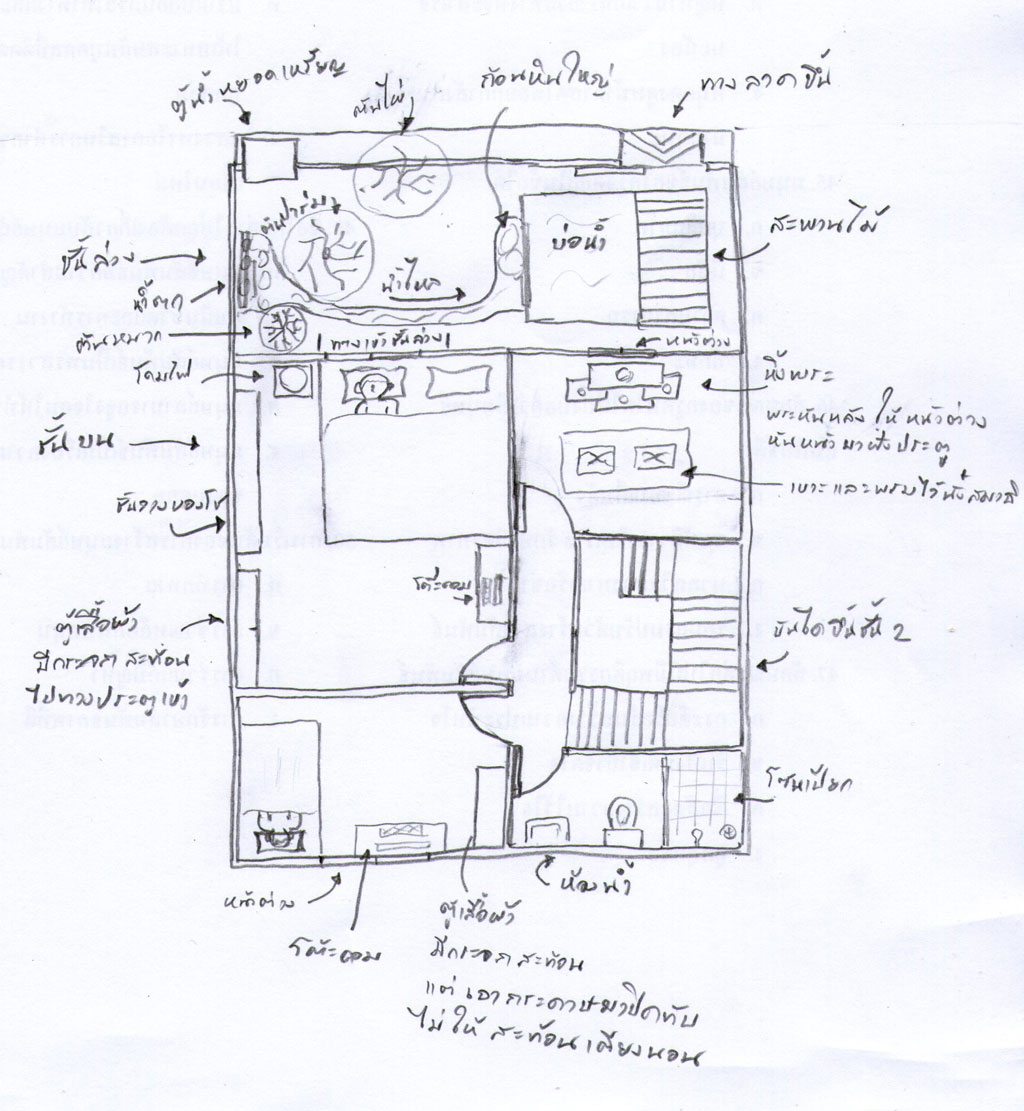 ตู้น้ำหยอดเหรียญ
ต้นไผ่
ก้อนหินใหญ่
ทางลาดขึ้น
ชั้นล่าง
บ่อน้ำ
สะพานไม้
น้ำตก
น้ำไหล
ต้นหมาก
ทางเข้าชั้นล่าง
หน้าต่าง
โคมไฟ
หิ้งพระ
พระหันหลังให้หน้าต่าง
หันหน้ามาฝั่งประตู
ชั้นบน
เบาะและพรมไว้นั่งสมาธิ
ชั้นวางของโชว์
โต๊ะคอม
ตู้เสื้อผ้า
มีกระจกสะท้อน
ไปทางประตูเข้า
บันไดขึ้นชั้น 2
โซนเปียก
หน้าต่าง
ห้องน้ำ
โต๊ะคอม
ตู้เสื้อผ้า
มีกระจกสะท้อน
แต่เอากระดาษมาปิดทับ
ไม่ให้สะท้อนเตียงนอน